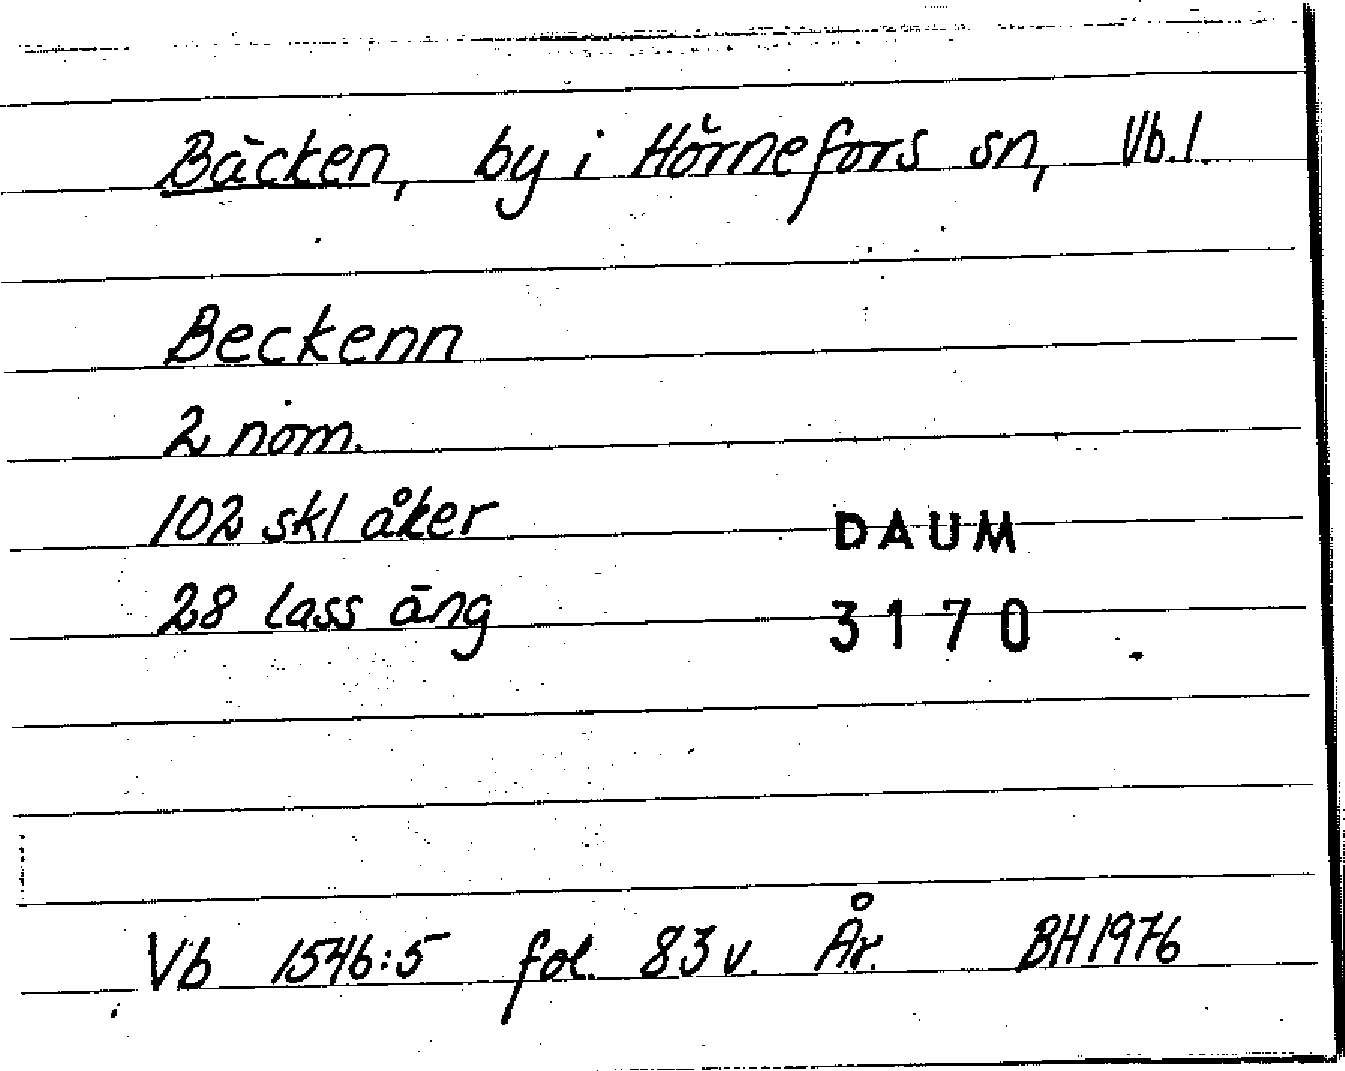 Bäcken, by i Hörnefors sn, Vb.l.
Beckenn
2 nom.
102 skl åker
DAUM
28 lass äng
3170
Vb 1546:5 fol. 83 v. År. BH 1976